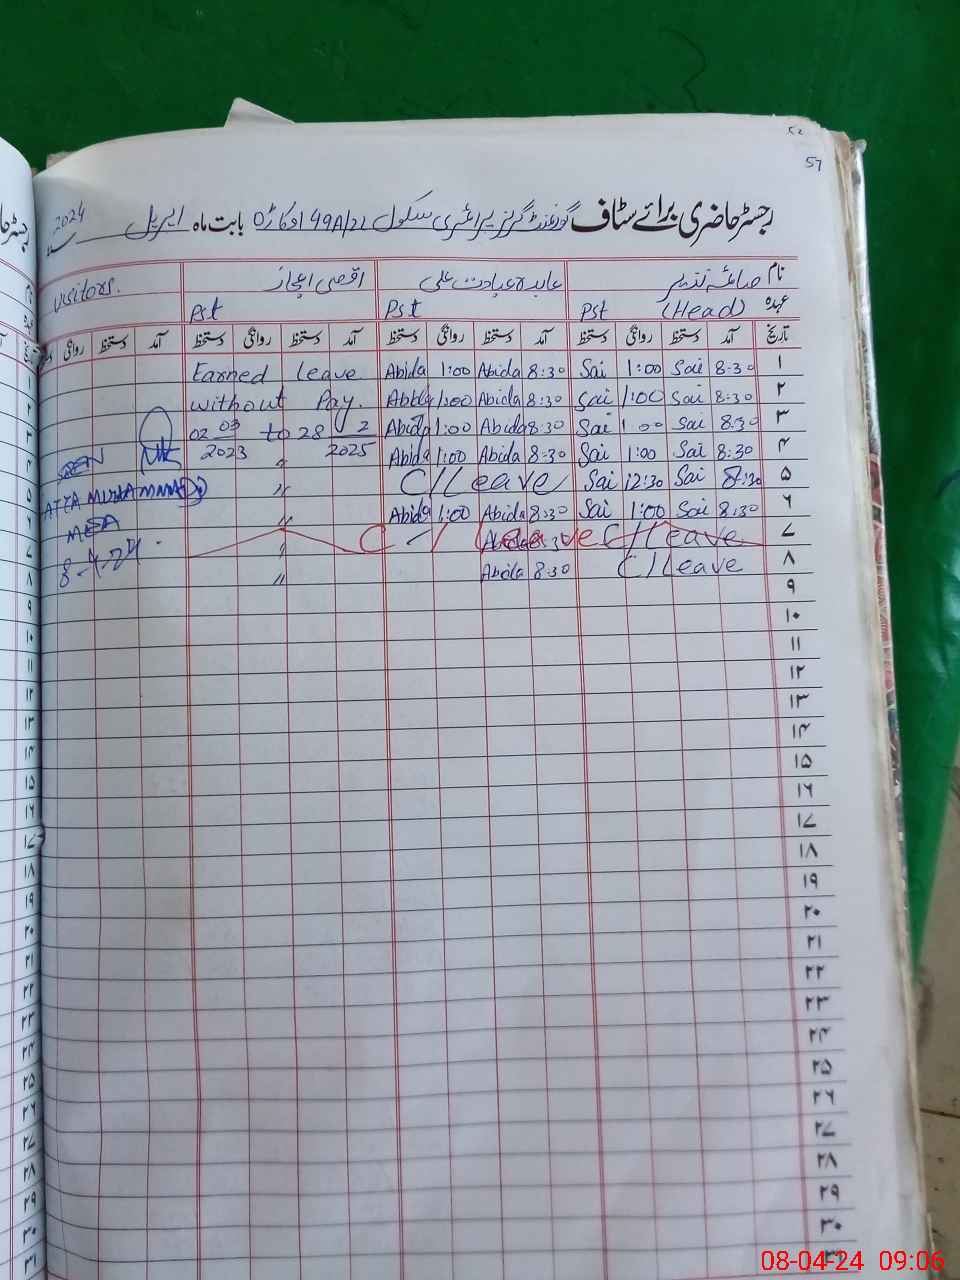 52
57
رجسٹر حاضری برائے سٹاف گورنمنٹ گرلز پرائمری سکول 49A/2L اوکاڑہ بابت ماہ اپریل 2024
نام صائمہ نذیر عابدہ عبادت علی اقصیٰ اعجاز Visitors.
عہدہ Pst (Head) Pst Pst
تاریخ آمد دستخط روانگی دستخط آمد دستخط روانگی دستخط آمد دستخط روانگی دستخط آمد دستخط روانگی
۱ 8:30 Sai 1:00 Sai 8:30 Abida 1:00 Abida Earned leave
۲ 8:30 Sai 1:00 Sai 8:30 Abida 1:00 Abida without Pay.
۳ 8:30 Sai 1:00 Sai 8:30 Abida 1:00 Abida 02 03 2023 to 28 2 2025
۴ 8:30 Sai 1:00 Sai 8:30 Abida 1:00 Abida "
۵ 8:30 Sai 12:30 Sai C/Leave "
۶ 8:30 Sai 1:00 Sai 8:30 Abida 1:00 Abida "
۷ C/Leave Abida 8:30 C/Leave "
۸ C/Leave Abida 8:30 "
MUHAMMAD
MEA
8-4-24
۹
۱۰
۱۱
۱۲
۱۳
۱۴
۱۵
۱۶
۱۷
۱۸
۱۹
۲۰
۲۱
۲۲
۲۳
۲۴
۲۵
۲۶
۲۷
۲۸
۲۹
۳۰
۳۱
08-04-24 09:06